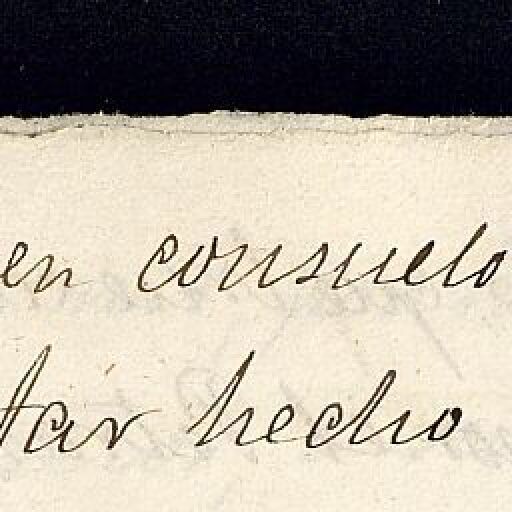 en consuelo
tar hecho